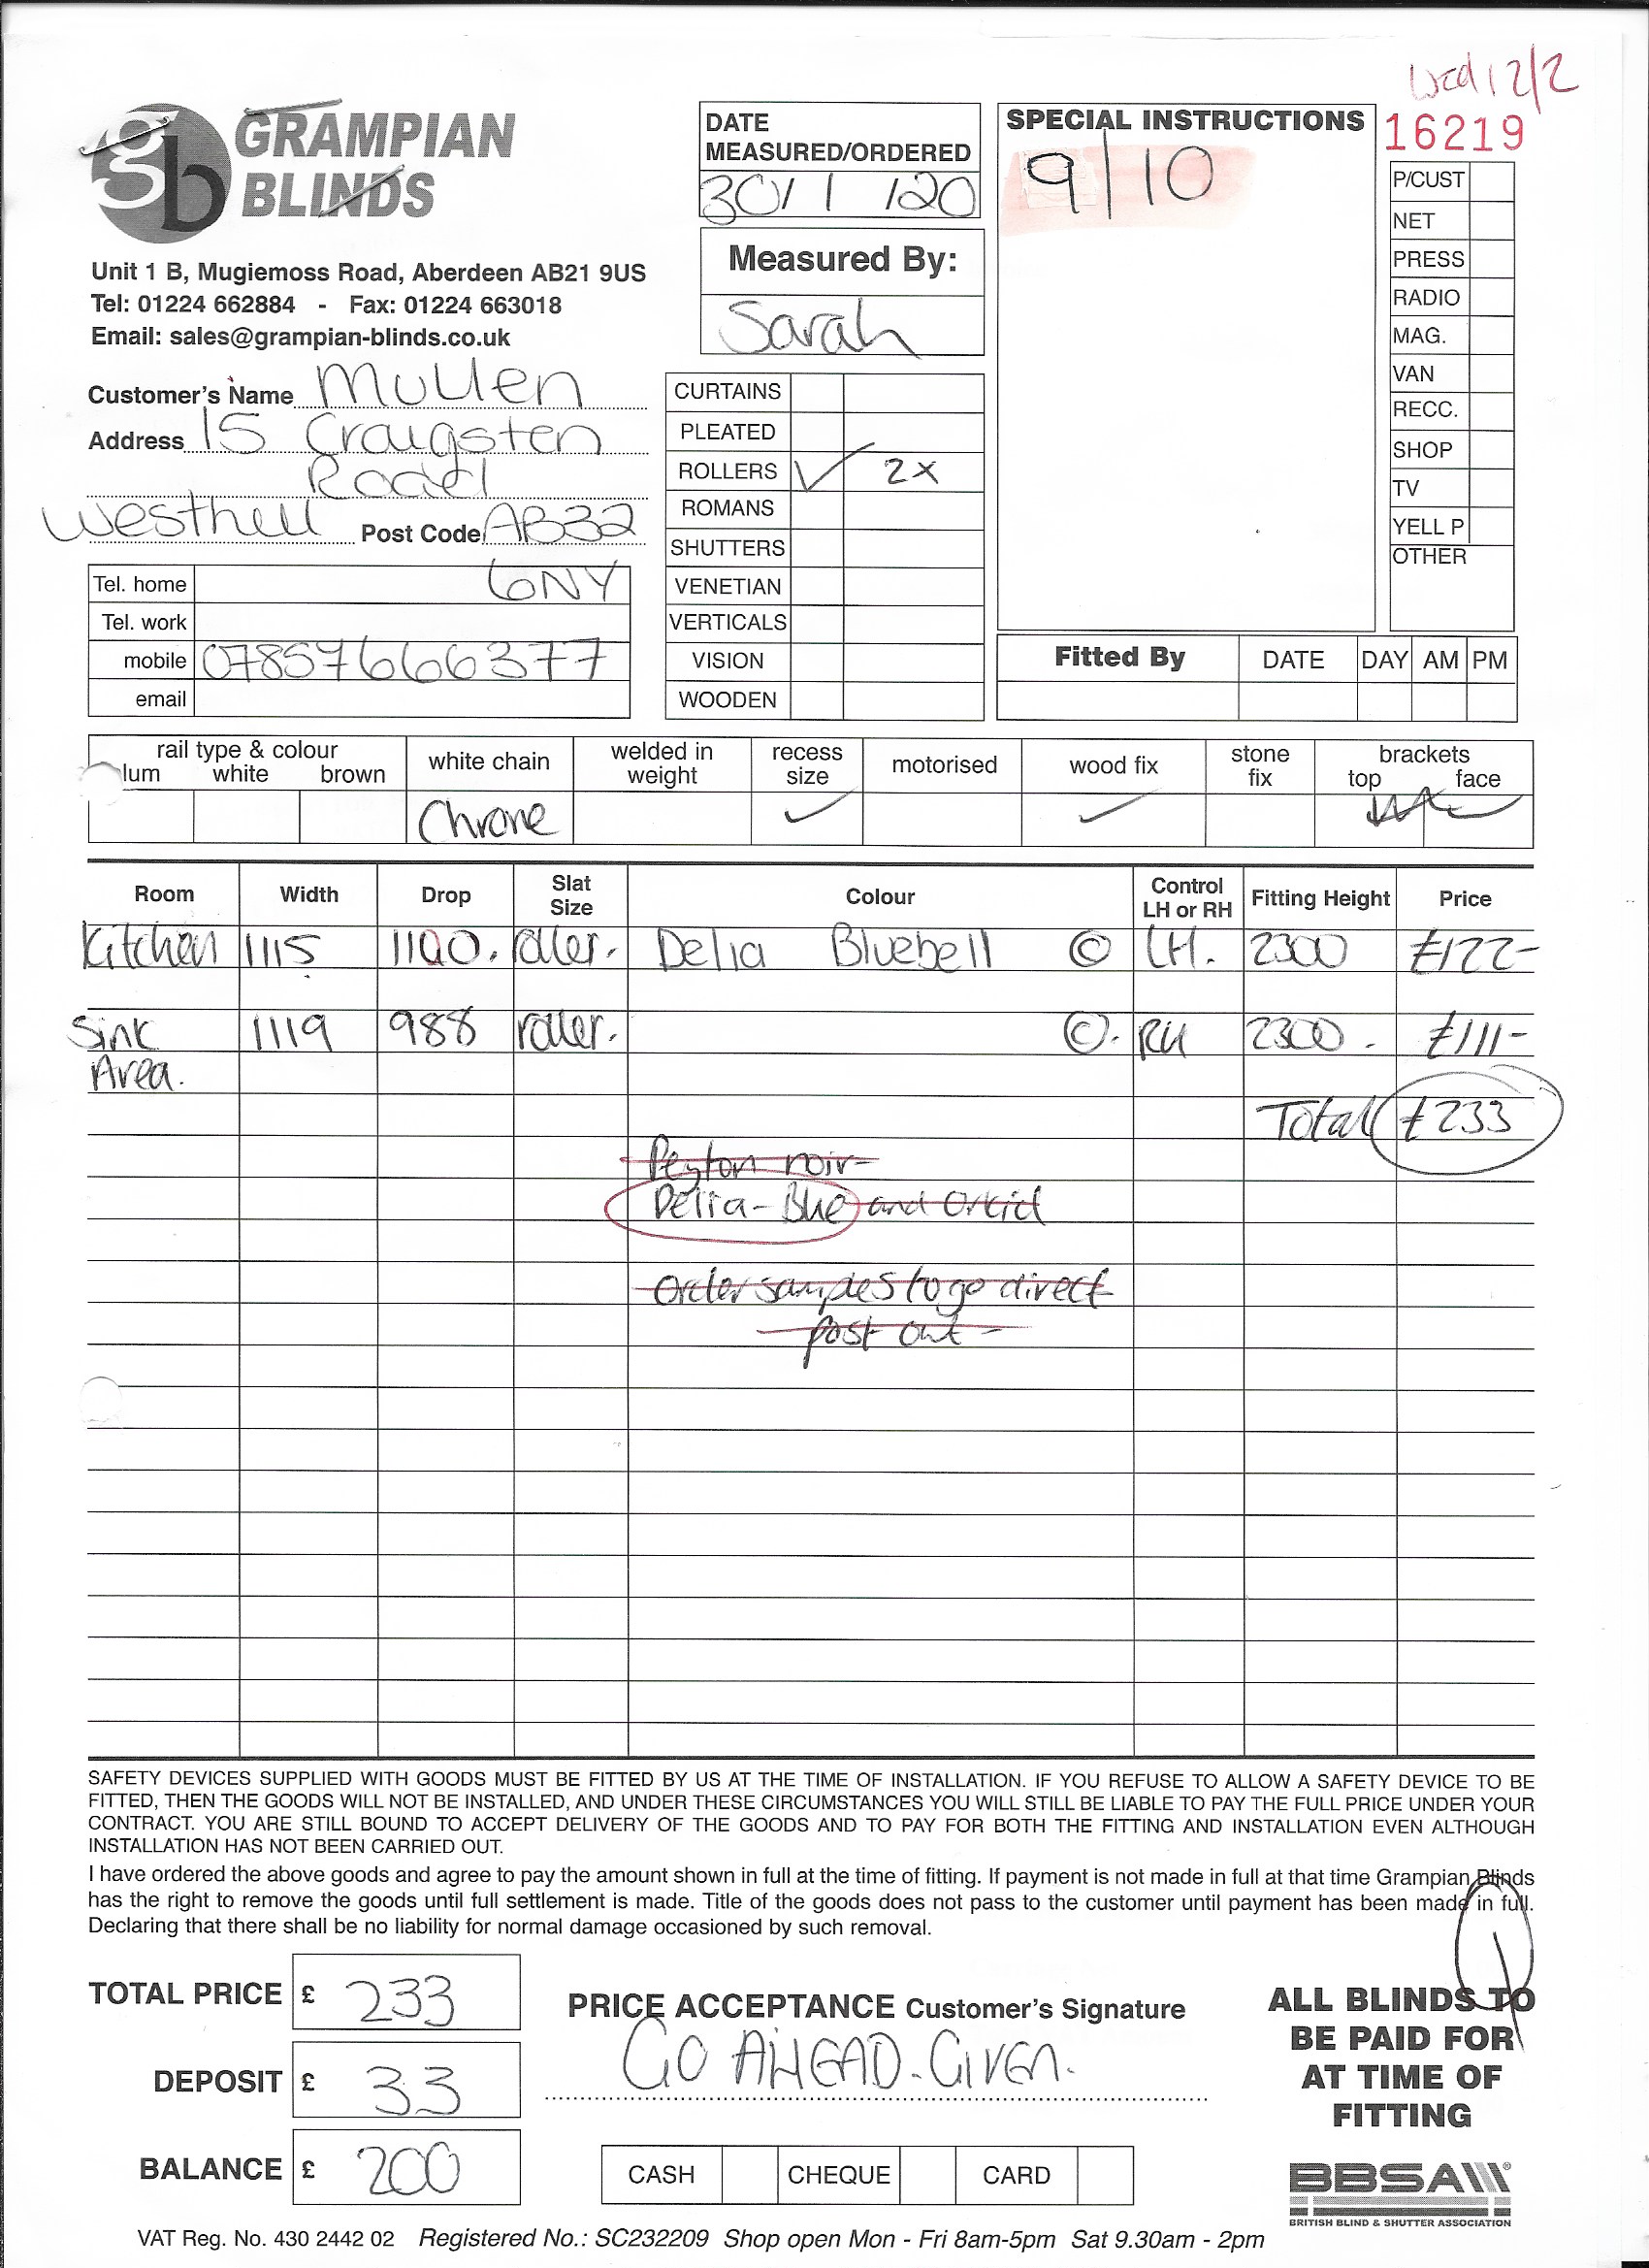 Wed 12/2
GRAMPIAN
BLINDS
gb
Unit 1 B, Mugiemoss Road, Aberdeen AB21 9US
Tel: 01224 662884 - Fax: 01224 663018
Email: sales@grampian-blinds.co.uk
DATE
MEASURED/ORDERED
30/1/20
Measured By:
Sarah
SPECIAL INSTRUCTIONS
9/10
16219
P/CUST
NET
PRESS
RADIO
MAG.
VAN
RECC.
SHOP
TV
YELL P
OTHER
Customer's Name Mullen
Address 15 Craigsten
Road
Westhill Post Code AB32
6NY
Tel. home
Tel. work
mobile 07857666377
email
CURTAINS
PLEATED
ROLLERS ✓ 2x
ROMANS
SHUTTERS
VENETIAN
VERTICALS
VISION
WOODEN
Fitted By DATE DAY AM PM
rail type & colour white chain welded in weight recess size motorised wood fix stone fix brackets
lum white brown top face
Chrome ✓ ✓
Room Width Drop Slat Size Colour Control LH or RH Fitting Height Price
Kitchen 1115 1100. roller. Delia Bluebell © LH. 2300 £122-
Sink 1119 988 roller. ©. RH 2300. £111-
Area.
Total £233
Peyton noir-
Delia - Blue and Orkid
Order samples to go direct
post out -
SAFETY DEVICES SUPPLIED WITH GOODS MUST BE FITTED BY US AT THE TIME OF INSTALLATION. IF YOU REFUSE TO ALLOW A SAFETY DEVICE TO BE
FITTED, THEN THE GOODS WILL NOT BE INSTALLED, AND UNDER THESE CIRCUMSTANCES YOU WILL STILL BE LIABLE TO PAY THE FULL PRICE UNDER YOUR
CONTRACT. YOU ARE STILL BOUND TO ACCEPT DELIVERY OF THE GOODS AND TO PAY FOR BOTH THE FITTING AND INSTALLATION EVEN ALTHOUGH
INSTALLATION HAS NOT BEEN CARRIED OUT.
I have ordered the above goods and agree to pay the amount shown in full at the time of fitting. If payment is not made in full at that time Grampian Blinds
has the right to remove the goods until full settlement is made. Title of the goods does not pass to the customer until payment has been made in full.
Declaring that there shall be no liability for normal damage occasioned by such removal.
TOTAL PRICE £ 233
DEPOSIT £ 33
BALANCE £ 200
PRICE ACCEPTANCE Customer's Signature
GO AHEAD. GIVEN.
CASH CHEQUE CARD
ALL BLINDS TO
BE PAID FOR
AT TIME OF
FITTING
BBSA
BRITISH BLIND & SHUTTER ASSOCIATION
VAT Reg. No. 430 2442 02 Registered No.: SC232209 Shop open Mon - Fri 8am-5pm Sat 9.30am - 2pm